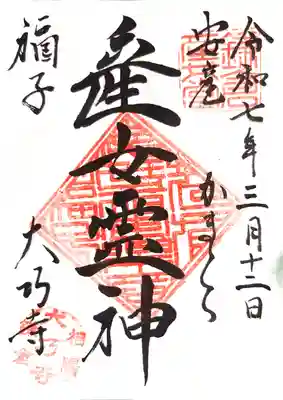 令和七年三月十二日
安産
かまくら
産女霊神
福子
大巧寺